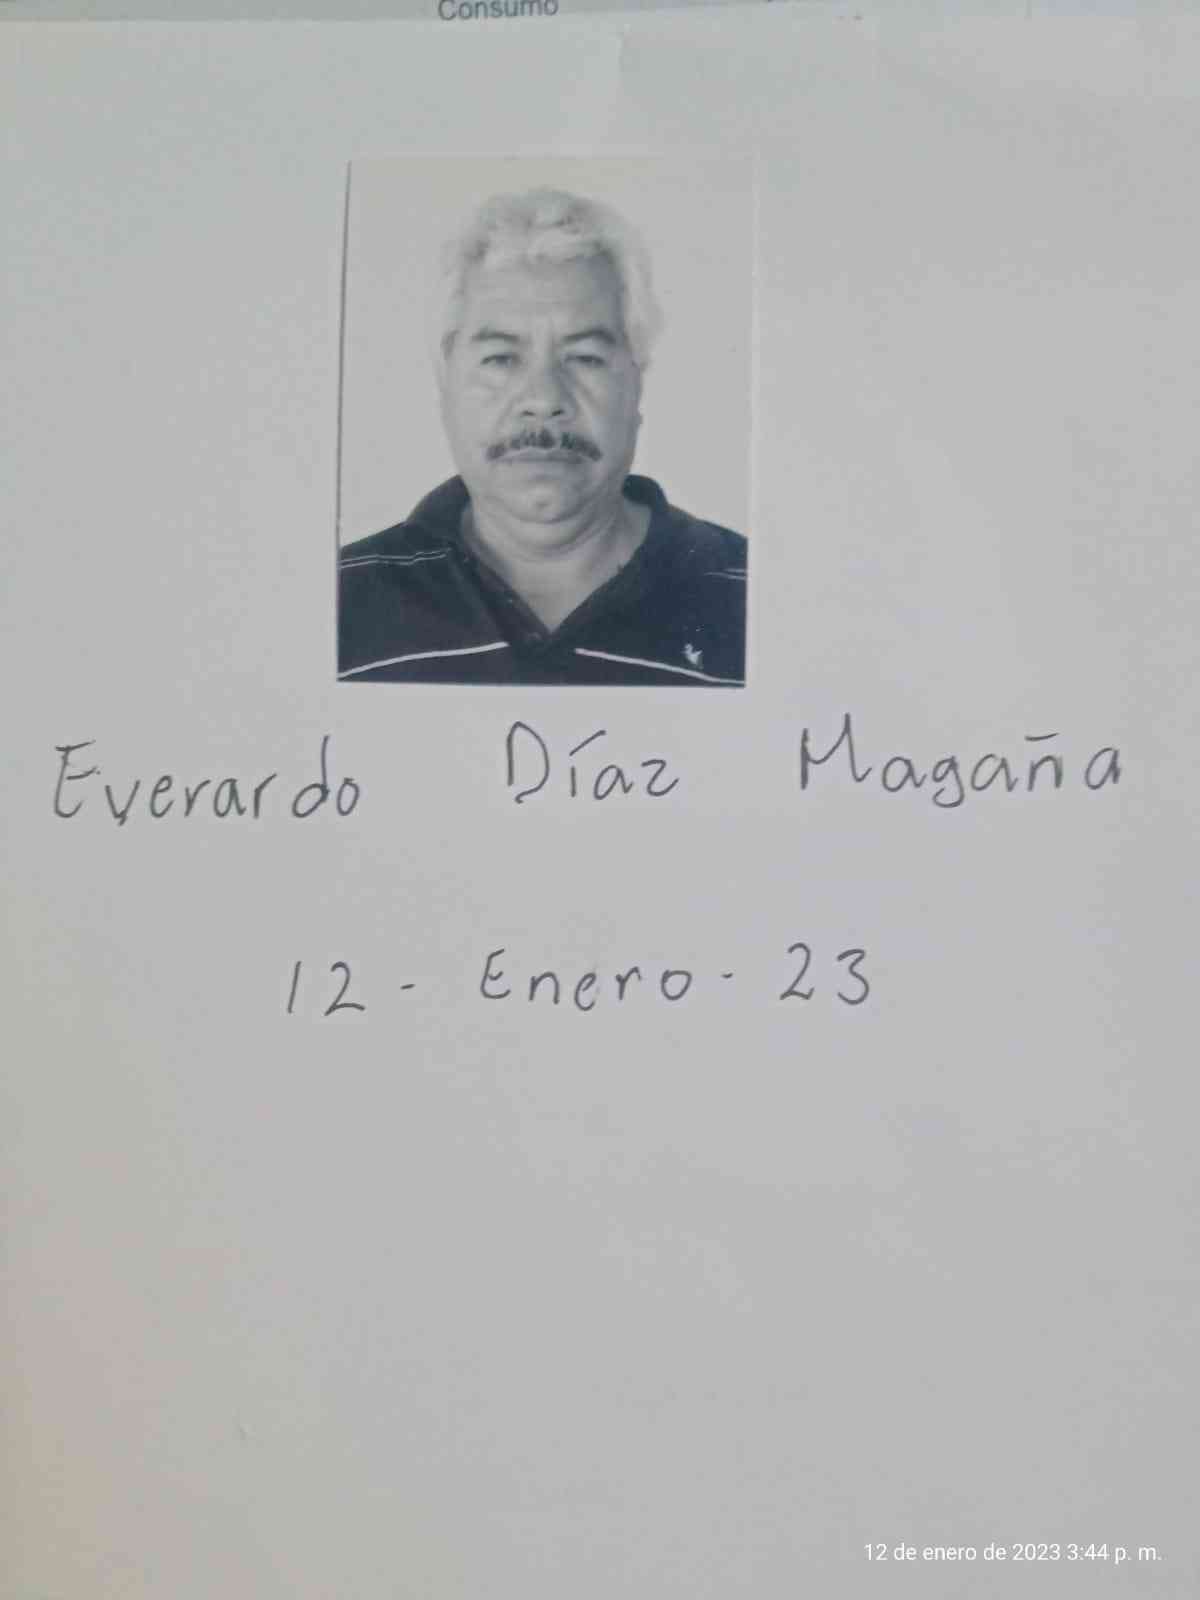 Consumo
Everardo Díaz Magaña
12 - Enero - 23
12 de enero de 2023 3:44 p. m.